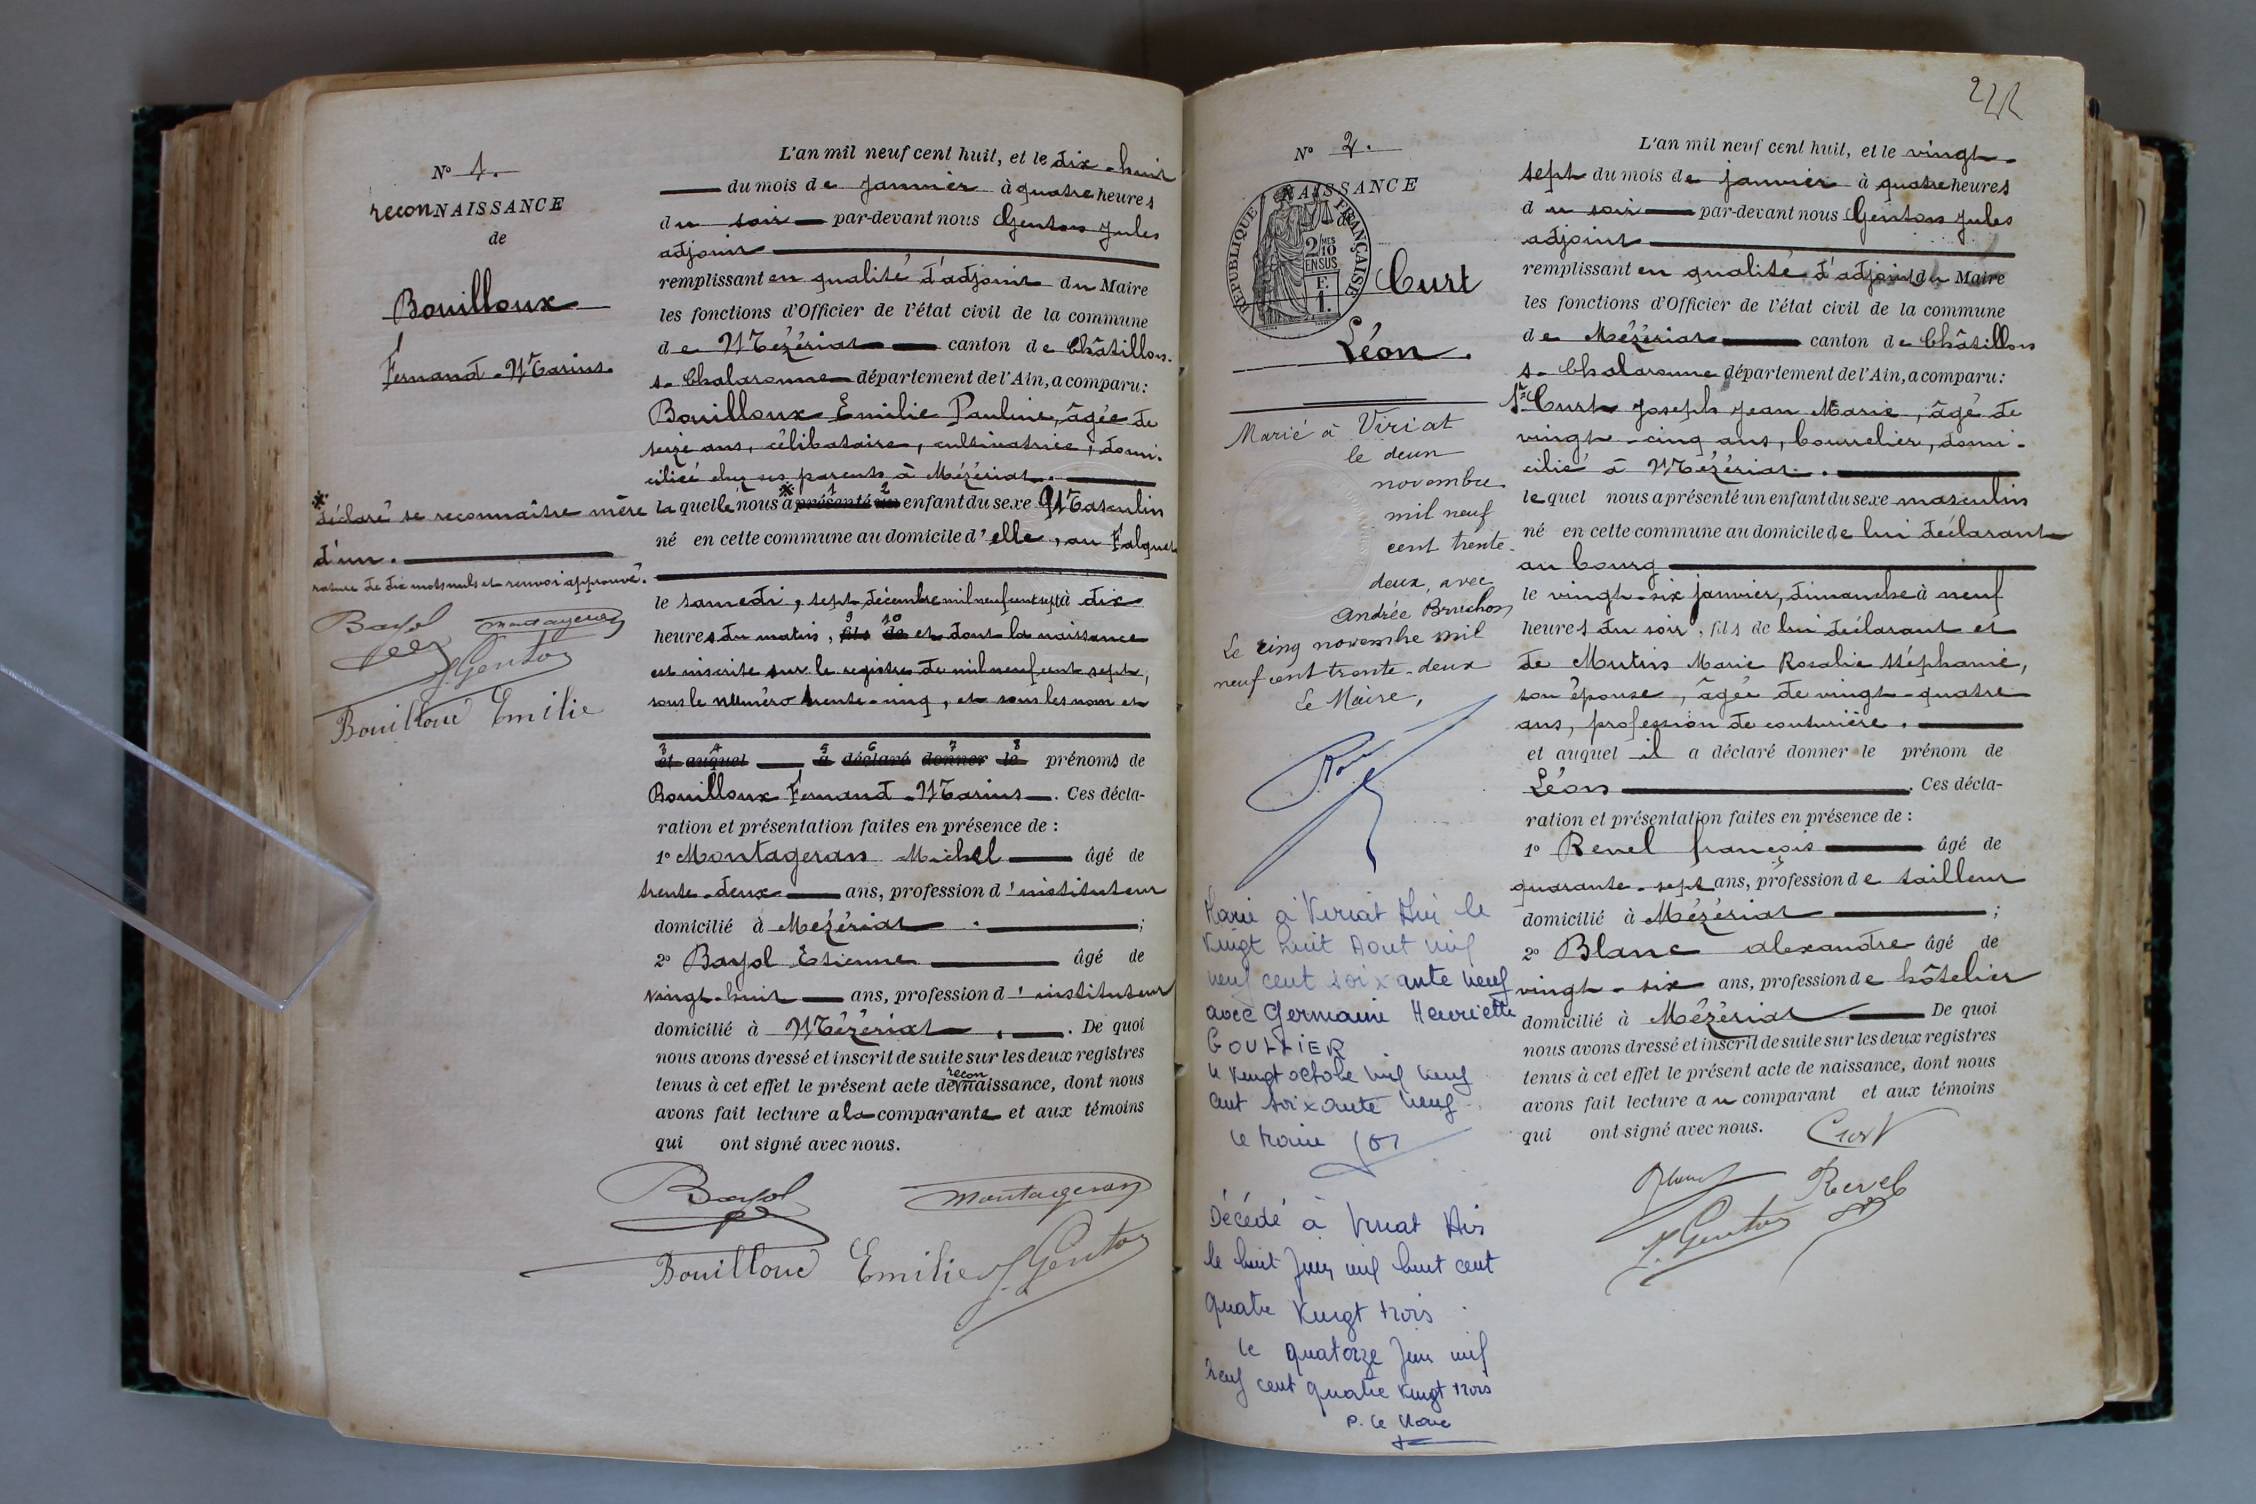 N° 1.
reconNAISSANCE
de
Bouilloux
Fernand-Marius.
*déclaré se reconnaître mère
d'un.
rature de dix mots nuls et renvoi approuvé.
Bayol Montageran
J. Genton
Bouilloud Emilie
L'an mil neuf cent huit, et le dix-huit
du mois de janvier à quatre heures
du soir par-devant nous Genton Jules
adjoint
remplissant en qualité d'adjoint du Maire
les fonctions d'Officier de l'état civil de la commune
de Mézériat canton de Châtillon-
s-Chalaronne département de l'Ain, a comparu:
Bouilloux Emilie Pauline, âgée de
seize ans, célibataire, cultivatrice, domi-
ciliée chez ses parents à Mézériat.
laquelle nous a * présenté un enfant du sexe Masculin
né en cette commune au domicile d'elle, au Falquet
le samedi, sept décembre mil neuf cent sept à dix
heures du matin, fils de et dont la naissance
est inscrite sur le registre de mil neuf cent sept,
sous le numéro trente-cinq, et sous les nom et
et auquel a déclaré donner le prénoms de
Bouilloux Fernand-Marius. Ces décla-
ration et présentation faites en présence de :
1° Montageran Michel âgé de
trente-deux ans, profession d'instituteur
domicilié à Mézériat. ;
2° Bayol Etienne âgé de
vingt-huit ans, profession d'instituteur
domicilié à Mézériat, . De quoi
nous avons dressé et inscrit de suite sur les deux registres
recon
tenus à cet effet le présent acte de naissance, dont nous
avons fait lecture a la comparante et aux témoins
qui ont signé avec nous.
Bayol Montageran
Bouilloud Emilie J. Genton
N° 2.
NAISSANCE
de
RÉPUBLIQUE FRANÇAISE
2/10 MES
EN SUS
F.
1.
Curt
Léon.
Marié à Viriat
le deux
novembre
mil neuf
cent trente-
deux, avec
Andrée Bruchon
Le cinq novembre mil
neuf cent trente-deux
Le Maire,
Marié à Viriat Ain le
vingt huit Aout mil
neuf cent soixante neuf
avec Germaine Henriette
GOULLIER
le vingt octobre mil neuf
cent soixante neuf
le Maire
Décédé à Viriat Ain
le huit Juin mil huit cent
quatre vingt trois.
le quatorze Juin mil
neuf cent quatre vingt trois
P. le Maire
L'an mil neuf cent huit, et le vingt-
sept du mois de janvier à quatre heures
du soir par-devant nous Genton Jules
adjoint
remplissant en qualité d'adjoint du Maire
les fonctions d'Officier de l'état civil de la commune
de Mézériat canton de Châtillon
s-Chalaronne département de l'Ain, a comparu:
Curt Joseph Jean Marie, âgé de
vingt-cinq ans, bourrelier, domi-
cilié à Mézériat.
lequel nous a présenté un enfant du sexe masculin
né en cette commune au domicile de lui déclarant
au bourg
le vingt-six janvier, dimanche à neuf
heures du soir, fils de lui déclarant et
de Mutin Marie Rosalie Stéphanie,
son épouse, âgée de vingt-quatre
ans, profession de couturière.
et auquel il a déclaré donner le prénom de
Léon . Ces décla-
ration et présentation faites en présence de :
1° Revel françois âgé de
quarante-sept ans, profession de tailleur
domicilié à Mézériat ;
2° Blanc alexandre âgé de
vingt-six ans, profession de hôtelier
domicilié à Mézériat De quoi
nous avons dressé et inscrit de suite sur les deux registres
tenus à cet effet le présent acte de naissance, dont nous
avons fait lecture au comparant et aux témoins
qui ont signé avec nous. Curt
Blanc Revel
J. Genton